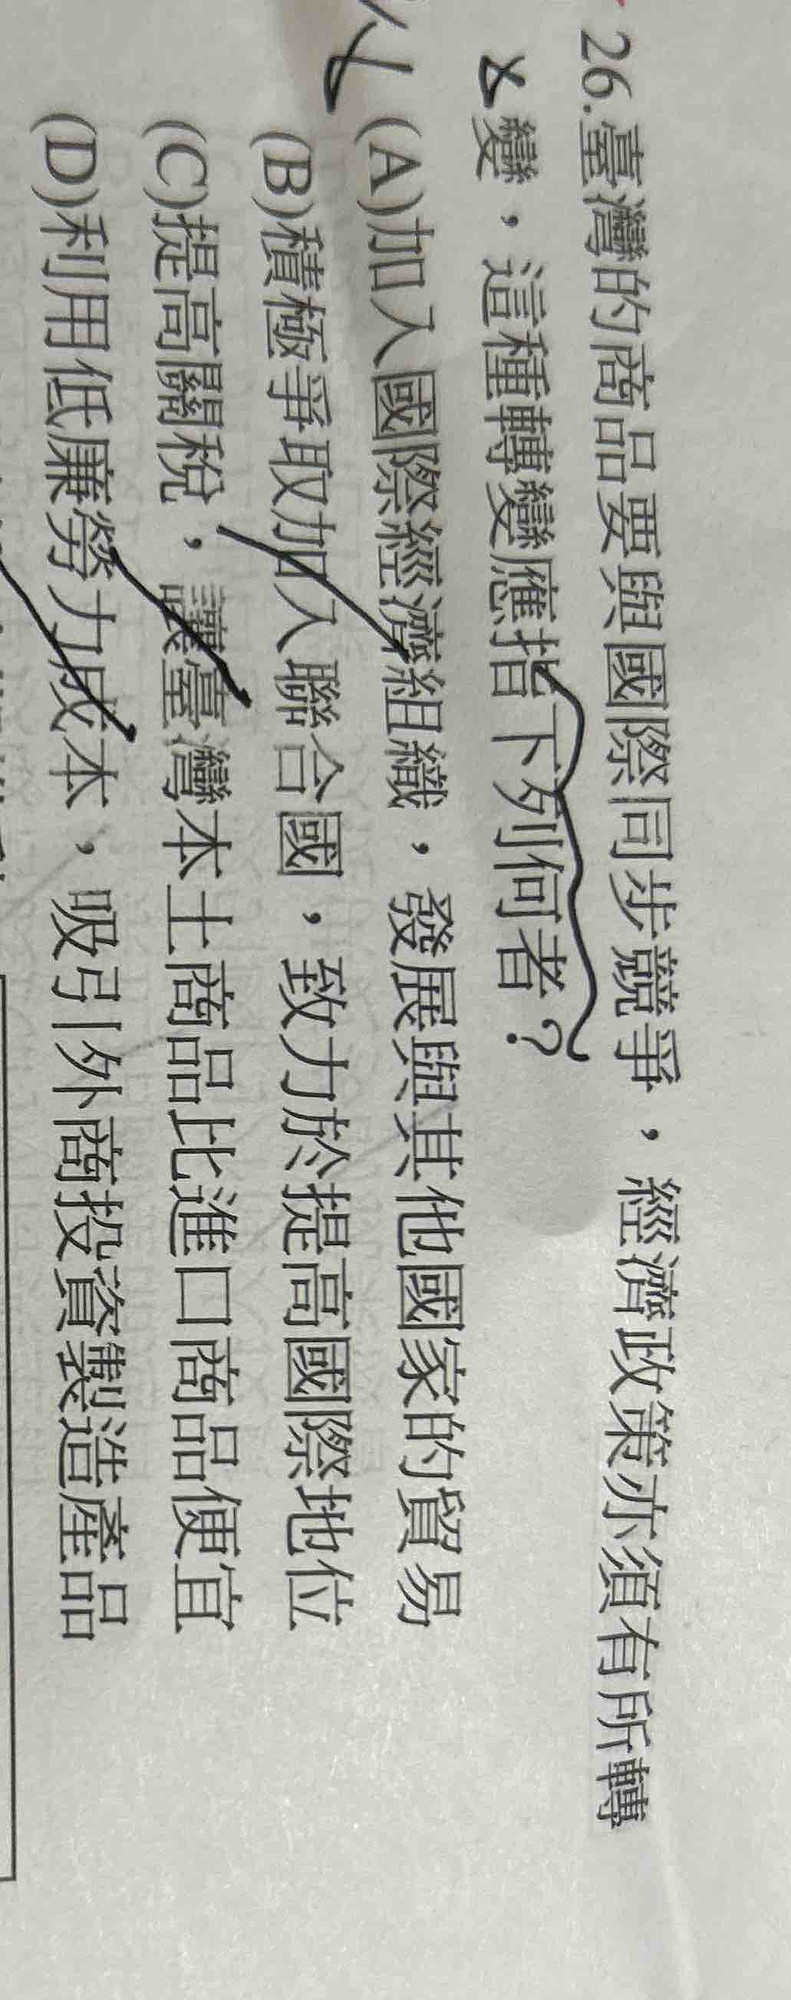 26.臺灣的商品要與國際同步競爭，經濟政策亦須有所轉
變，這種轉變應指下列何者？
(A)加入國際經濟組織，發展與其他國家的貿易
(B)積極爭取加入聯合國，致力於提高國際地位
(C)提高關稅，讓臺灣本土商品比進口商品便宜
(D)利用低廉勞力成本，吸引外商投資製造產品